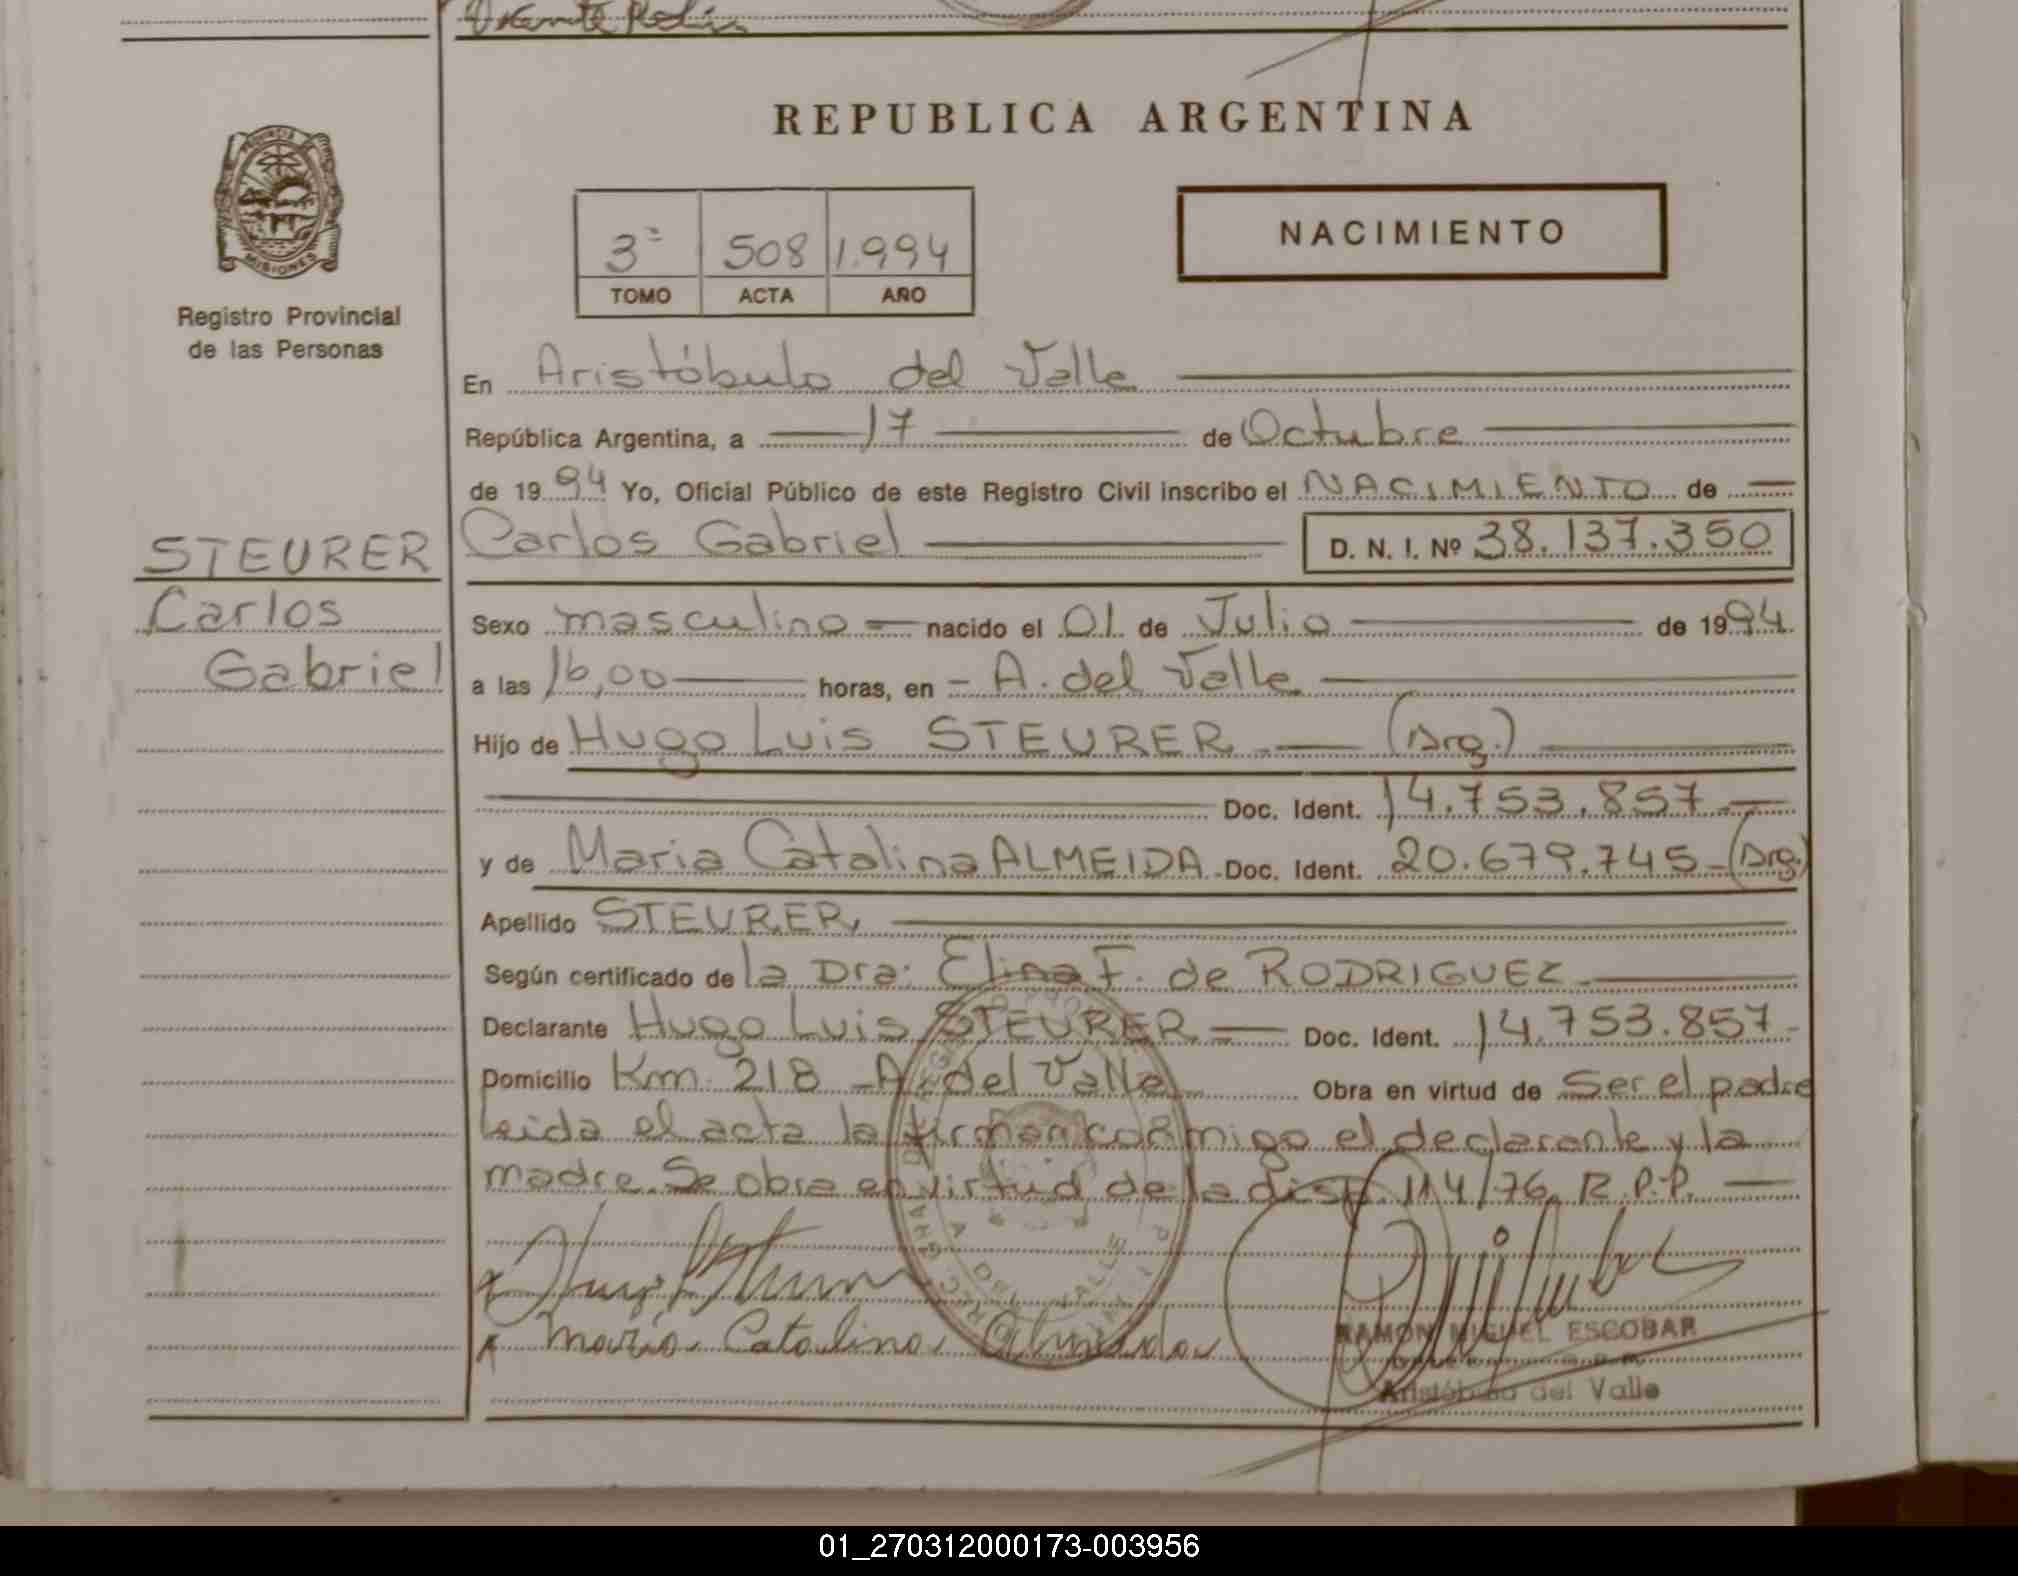 REPUBLICA ARGENTINA
PROVINCIA
MISIONES
Registro Provincial
de las Personas
3º 508 1.994
TOMO ACTA AÑO
NACIMIENTO
En Aristóbulo del Valle
República Argentina, a 17 de Octubre
de 1994 Yo, Oficial Público de este Registro Civil inscribo el NACIMIENTO de
STEURER
Carlos
Gabriel
Carlos Gabriel D. N. I. Nº 38.137.350
Sexo masculino nacido el 01 de Julio de 1994
a las 16,00 horas, en - A. del Valle
Hijo de Hugo Luis STEURER (Arg.)
Doc. Ident. 14.753.857
y de Maria Catalina ALMEIDA Doc. Ident. 20.679.745 (Arg.)
Apellido STEURER
Según certificado de la Dra: Elina F. de RODRIGUEZ
Declarante Hugo Luis STEURER Doc. Ident. 14.753.857
Domicilio Km. 218 - A. del Valle Obra en virtud de Ser el padre
leida el acta la firman conmigo el declarante y la
madre. Se obra en virtud de la disp. 114/76 R.P.P.
Maria Catalina Almeida
RAMON MIGUEL ESCOBAR
Aristóbulo del Valle
01_270312000173-003956